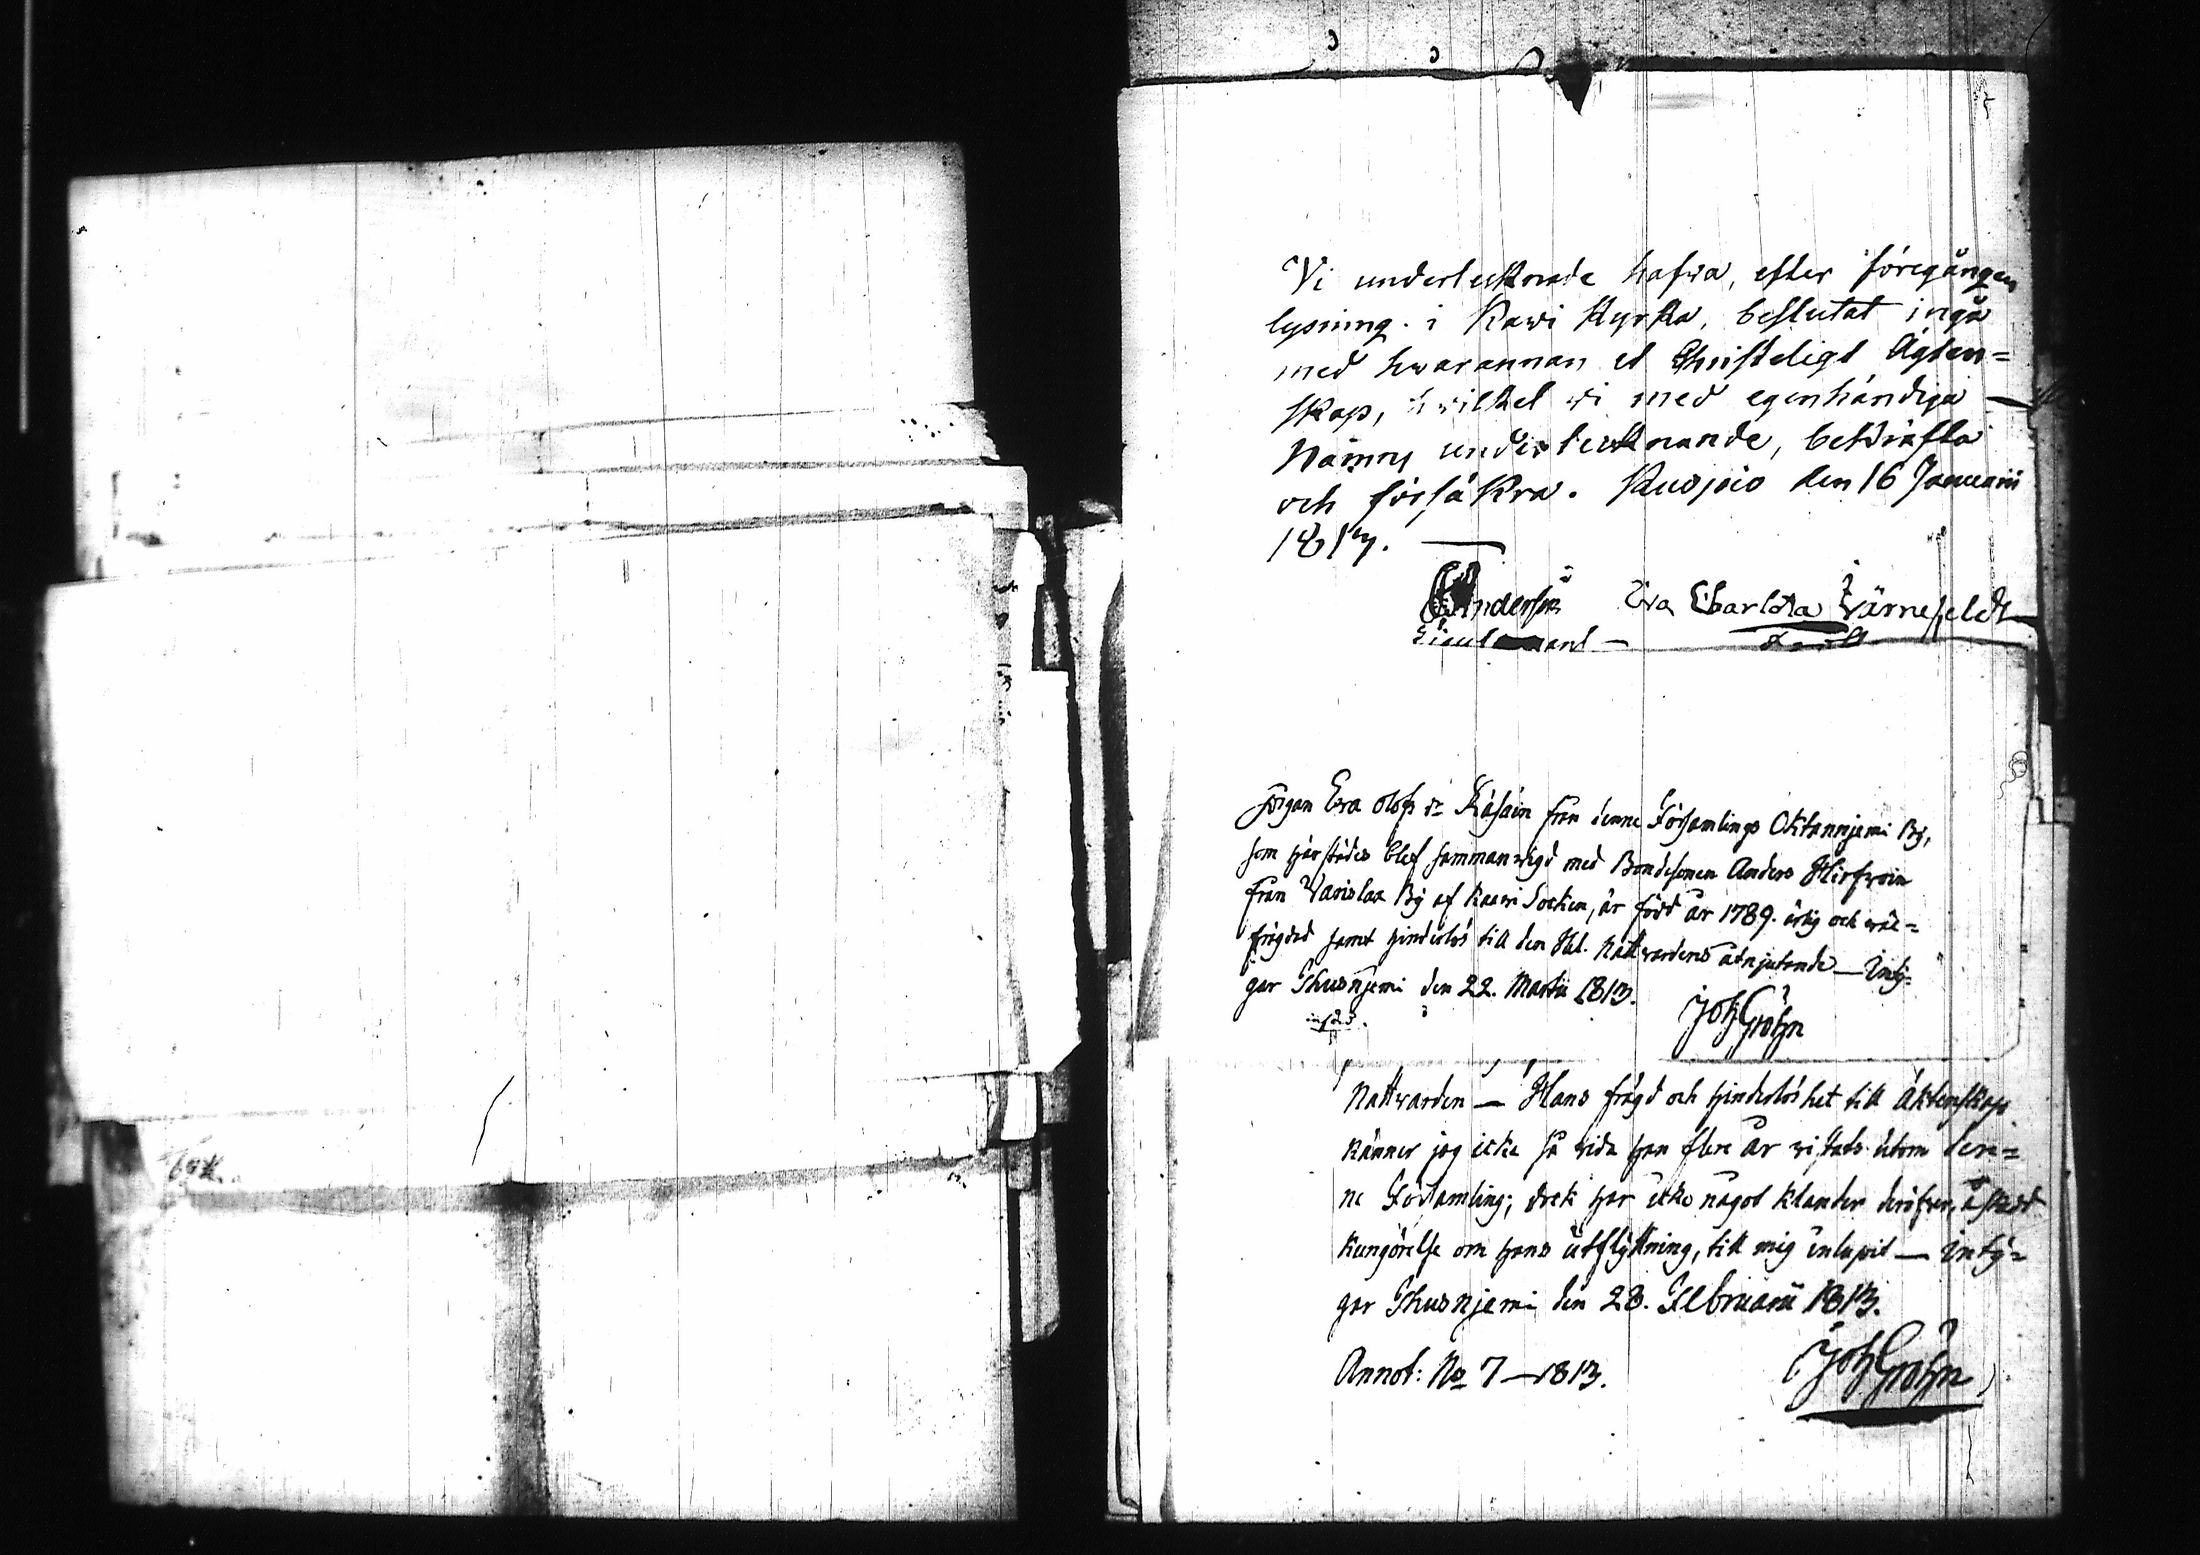 Vi undertecknade hafva, efter föregången
lysning i Kavi Kyrka, beslutat ingå
med hvarannan et Christeligt Ägten=
skap, hvilket vi med egenhändiga
Namns undertecknande, bekräfta
och försäkra. Kuopio den 16 Januarii
1813.
Anderson Eva Charlotta Järnefeldt
Lieutenant
Pigan Eva Olofs dr Räsäin från denne Församlings Oktannjemi By,
som härstädes blef sammanvigd med Bondesonen Anders Hirfwoin
från Varislax By af Kaavi Socken, är född år 1789. ärlig och wäl=
frägdad samt hinderlös till den Hel. Nattwardens åtnjutande — Inty=
gar Thusnjemi den 22. Martii 1813.
Joh Gröhn
Nattwarden — Hans frägd och hinderlöshet till Äktenskap
känner jag icke så vida han flere år vistats utom den=
ne Församling; dock har icke något klander deröfver, å skedd
kungörelse om hans utflyttning, till mig inlupit — Inty=
gar Thusnjemi den 28. Februarii 1813.
Annot: No 7 — 1813.
Joh Gröhn